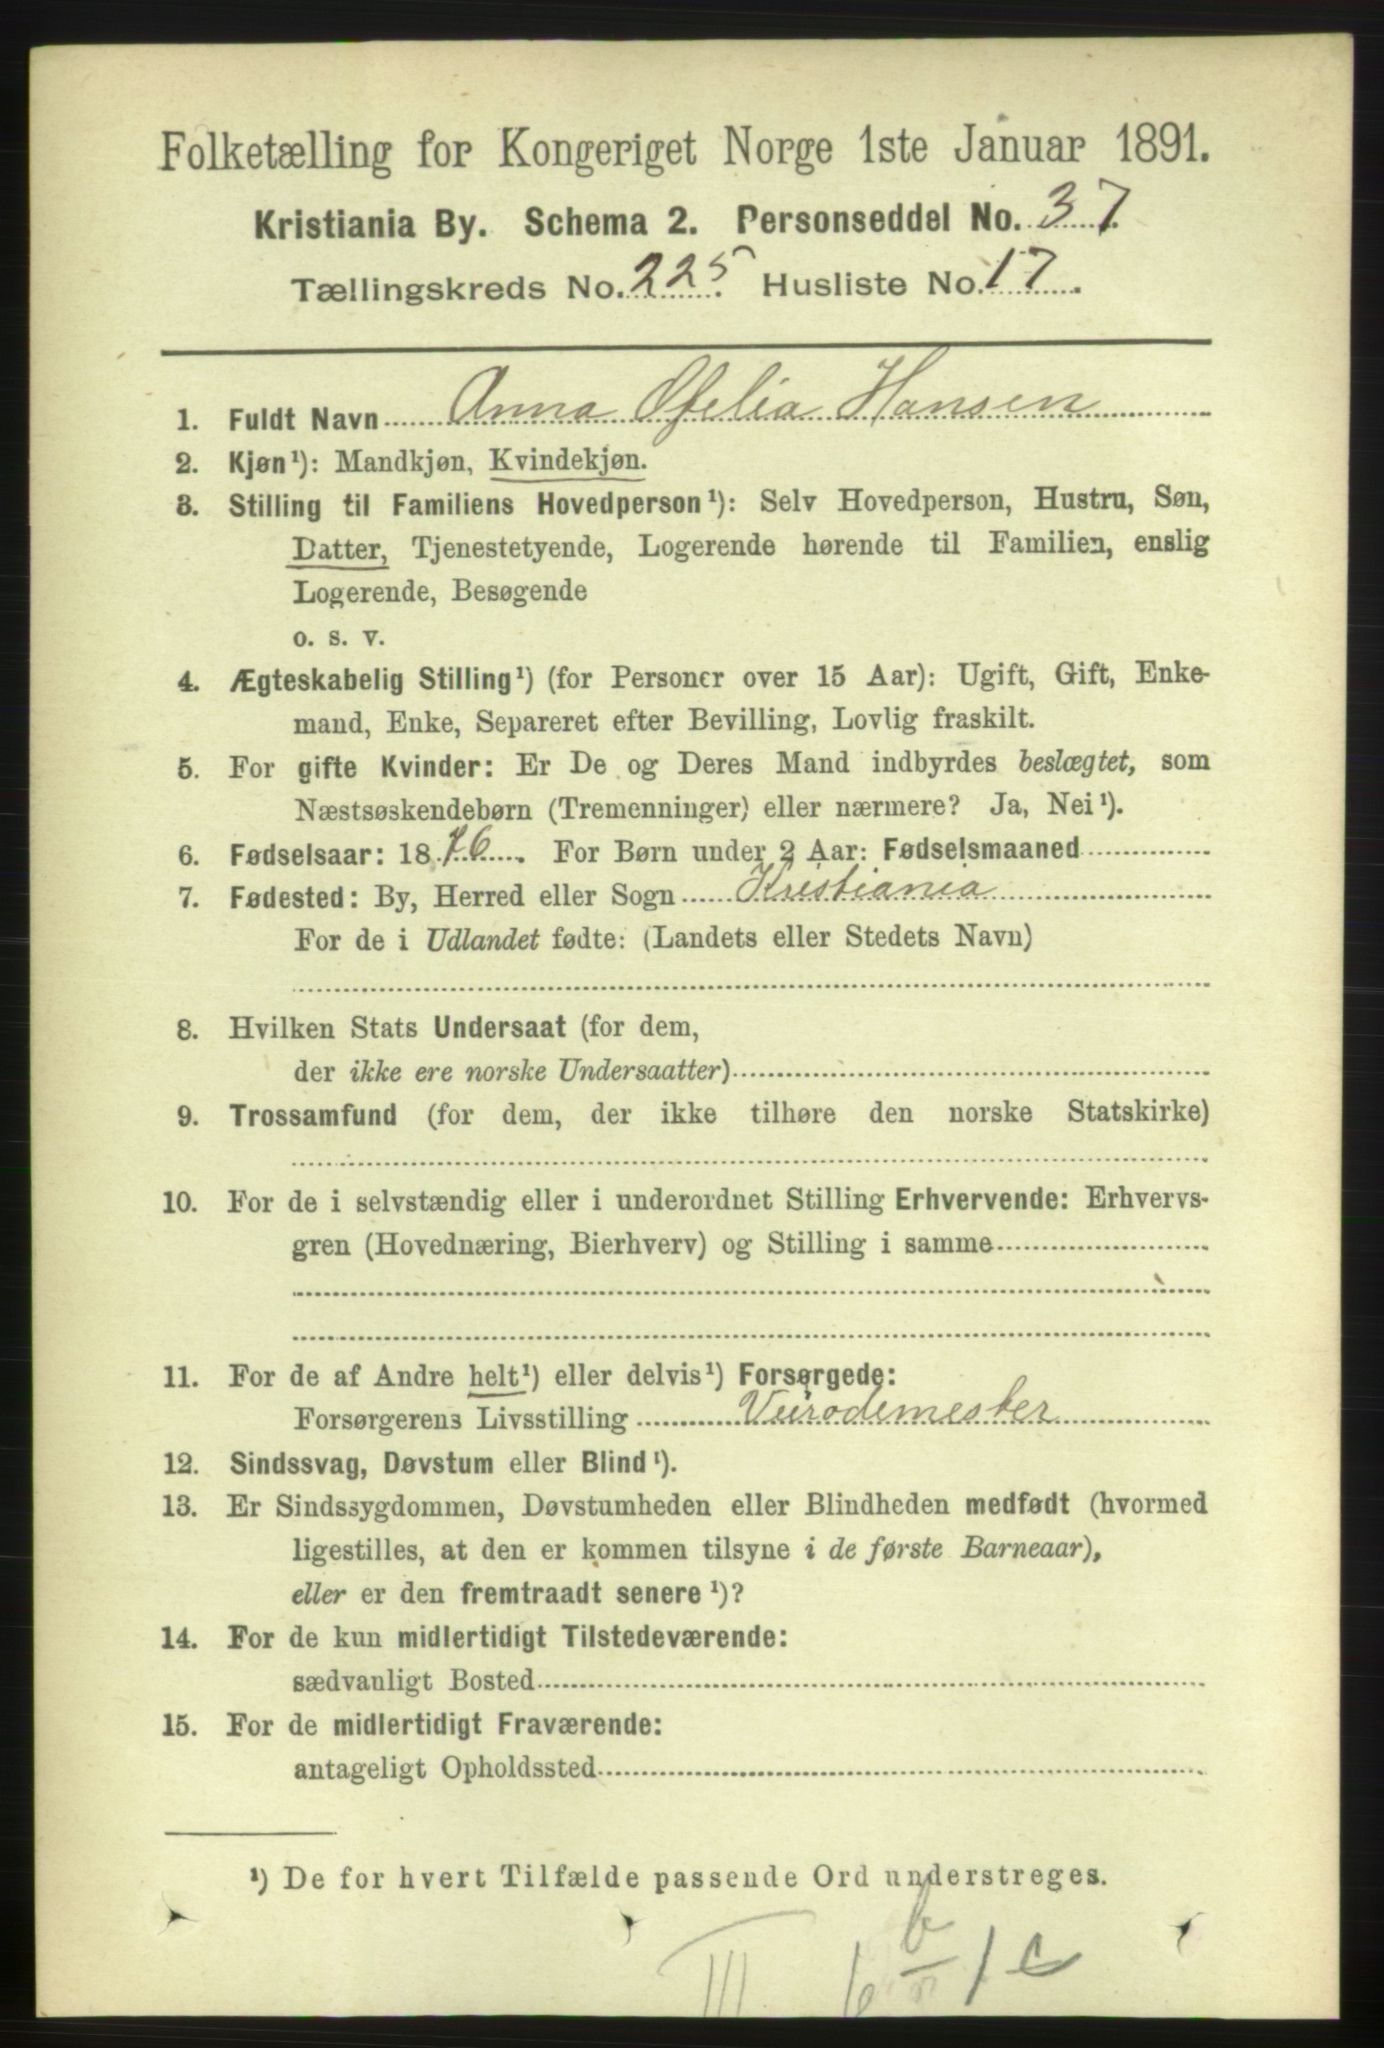 Folketælling for Kongeriget Norge 1ste Januar 1891.
Kristiania By. Schema 2. Personseddel No. 37.
Tællingskreds No. 225. Husliste No. 17.
1. Fuldt Navn Anna Ofelia Hansen
2. Kjøn¹): Mandkjøn, Kvindekjøn.
3. Stilling til Familiens Hovedperson¹): Selv Hovedperson, Hustru, Søn,
Datter, Tjenestetyende, Logerende hørende til Familien, enslig
Logerende, Besøgende
o. s. v.
4. Ægteskabelig Stilling¹) (for Personer over 15 Aar): Ugift, Gift, Enke-
mand, Enke, Separeret efter Bevilling, Lovlig fraskilt.
5. For gifte Kvinder: Er De og Deres Mand indbyrdes beslægtet, som
Næstsøskendebørn (Tremenninger) eller nærmere? Ja, Nei¹).
6. Fødselsaar: 1876. For Børn under 2 Aar: Fødselsmaaned
7. Fødested: By, Herred eller Sogn Kristiania
For de i Udlandet fødte: (Landets eller Stedets Navn)
8. Hvilken Stats Undersaat (for dem,
der ikke ere norske Undersaatter)
9. Trossamfund (for dem, der ikke tilhøre den norske Statskirke)
10. For de i selvstændig eller i underordnet Stilling Erhvervende: Erhvervs-
gren (Hovednæring, Bierhverv) og Stilling i samme
11. For de af Andre helt¹) eller delvis¹) Forsørgede:
Forsørgerens Livsstilling Veirodemester
12. Sindssvag, Døvstum eller Blind¹).
13. Er Sindssygdommen, Døvstumheden eller Blindheden medfødt (hvormed
ligestilles, at den er kommen tilsyne i de første Barneaar),
eller er den fremtraadt senere¹)?
14. For de kun midlertidigt Tilstedeværende:
sædvanligt Bosted
15. For de midlertidigt Fraværende:
antageligt Opholdssted
¹) De for hvert Tilfælde passende Ord understreges.
III